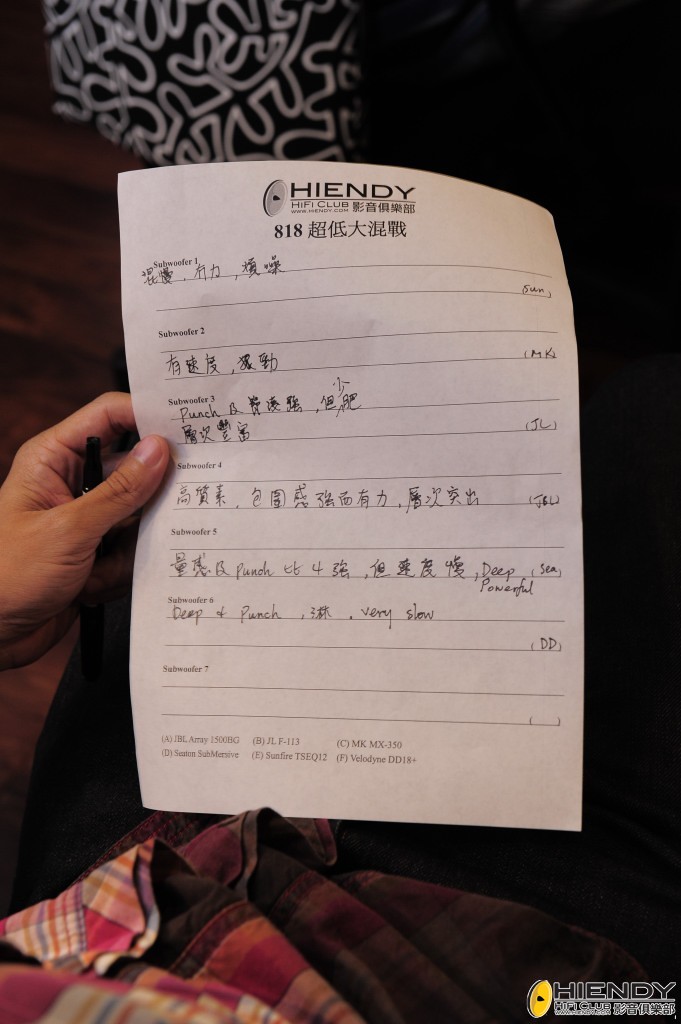 HIENDY
HiFi CLUB 影音俱樂部
WWW.HIENDY.COM
818 超低大混戰
Subwoofer 1
混慢，有力，煩噪
(Sun)
Subwoofer 2
有速度，勁
(MK)
Subwoofer 3
Punch 及 強，但少肥
層次豐富
(JL)
Subwoofer 4
高質素，包圍感強而有力，層次突出
(JBL)
Subwoofer 5
量感及 punch 比 4 強，但速度慢，Deep (Sea)
Powerful
Subwoofer 6
Deep & Punch，淋，very slow
(DD)
Subwoofer 7
( )
(A) JBL Array 1500BG (B) JL F-113 (C) MK MX-350
(D) Seaton SubMersive (E) Sunfire TSEQ12 (F) Velodyne DD18+
HIENDY
HIFI CLUB 影音俱樂部